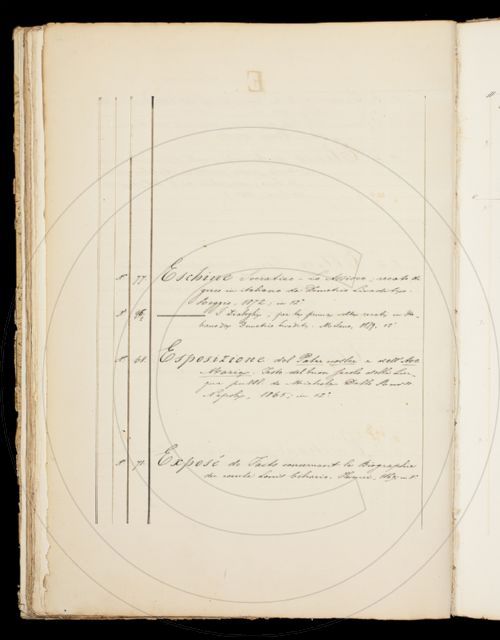 E
N. 77 Eschine Socratico - La Assioco, recato di
greco in italiano da Demetrio Livaditi.
Reggio, 1872, in 12°
I Dialoghi, per la prima volta recati in ita
liano da Demetrio Livaditi. Milano, 12°
N. 61 Esposizione del Pater noster e dell'Ave
Maria. Testo del buon secolo della Lin-
gua pubbl. da Michele Dello Russo
Napoli, 1865; in 12°
N. 71 Exposé de Facts concernant la Biographie
du comte Louis Cibrario.